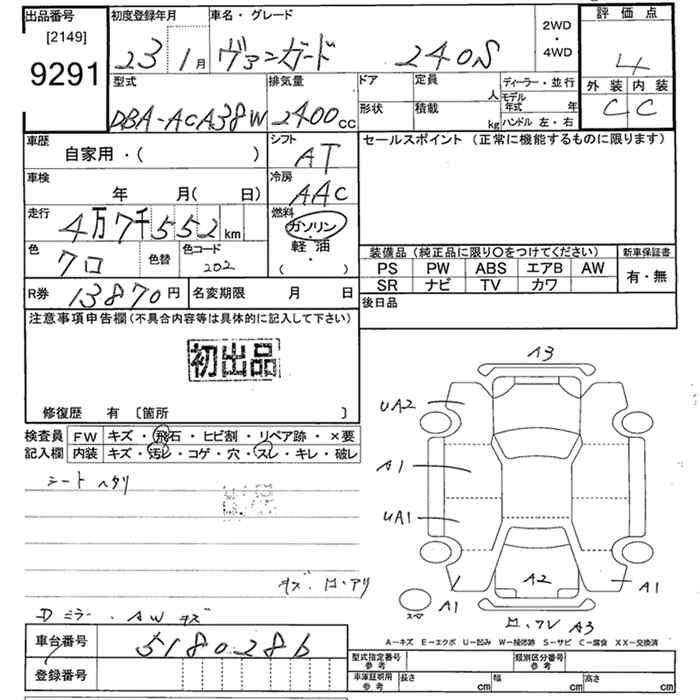 出品番号 初度登録年月 車名・グレード 2WD・4WD 評価点
[2149]
9291
23 1月 ヴァンガード 240S 4
型式 排気量 ドア 定員 人 ディーラー・並行 外装 内装
DBA-ACA38W 2400cc 形状 積載 kg モデル年式 年 C C
ハンドル 左・右
車歴 シフト セールスポイント (正常に機能するものに限ります)
自家用・( ) AT
車検 冷房
年 月( 日) AAC
走行 燃料
4万7千552km ガソリン
色 色替 色コード 軽油
クロ 202 ( )
装備品 (純正品に限り〇をつけてください) 新車保証書
PS PW ABS エアB AW 有・無
SR ナビ TV カワ
R券 13870円 名変期限 月 日 後日品
注意事項申告欄 (不具合内容等は具体的に記入して下さい)
初出品
修復歴 有 〔箇所 〕
検査員 FW キズ・飛石・ヒビ割・リペア跡・×要
記入欄 内装 キズ・汚レ・コゲ・穴・スレ・キレ・破レ
シートヘタリ
キズ・凹・アリ
Dミラー・AWキズ
A3
UA2
A1
UA1
A2
A1
スペア
A1
A3
A-キズ E-エクボ U-凹み W-補修跡 S-サビ C-腐食 XX-交換済
車台番号 5180286
登録番号
型式指定番号 参考 類別区分番号 参考
車庫証明用 参考 長さ cm 幅 cm 高さ cm